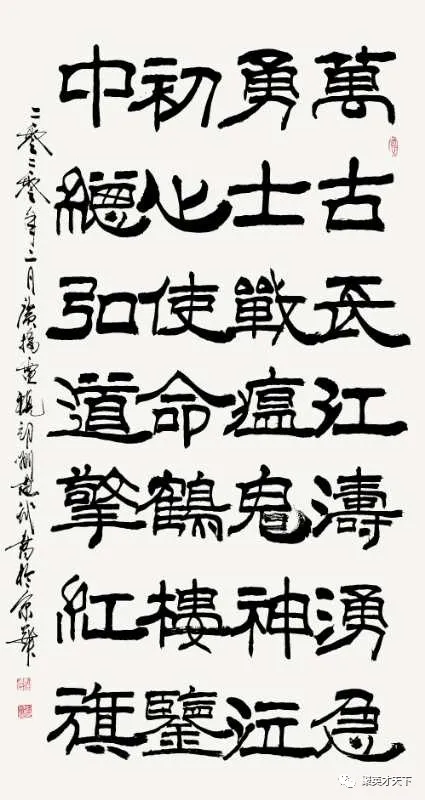 萬古長江濤湧急
勇士戰瘟鬼神泣
初心使命鶴樓鑒
中總弘道擎紅旗
二零二零年二月書於京華
聚英才天下